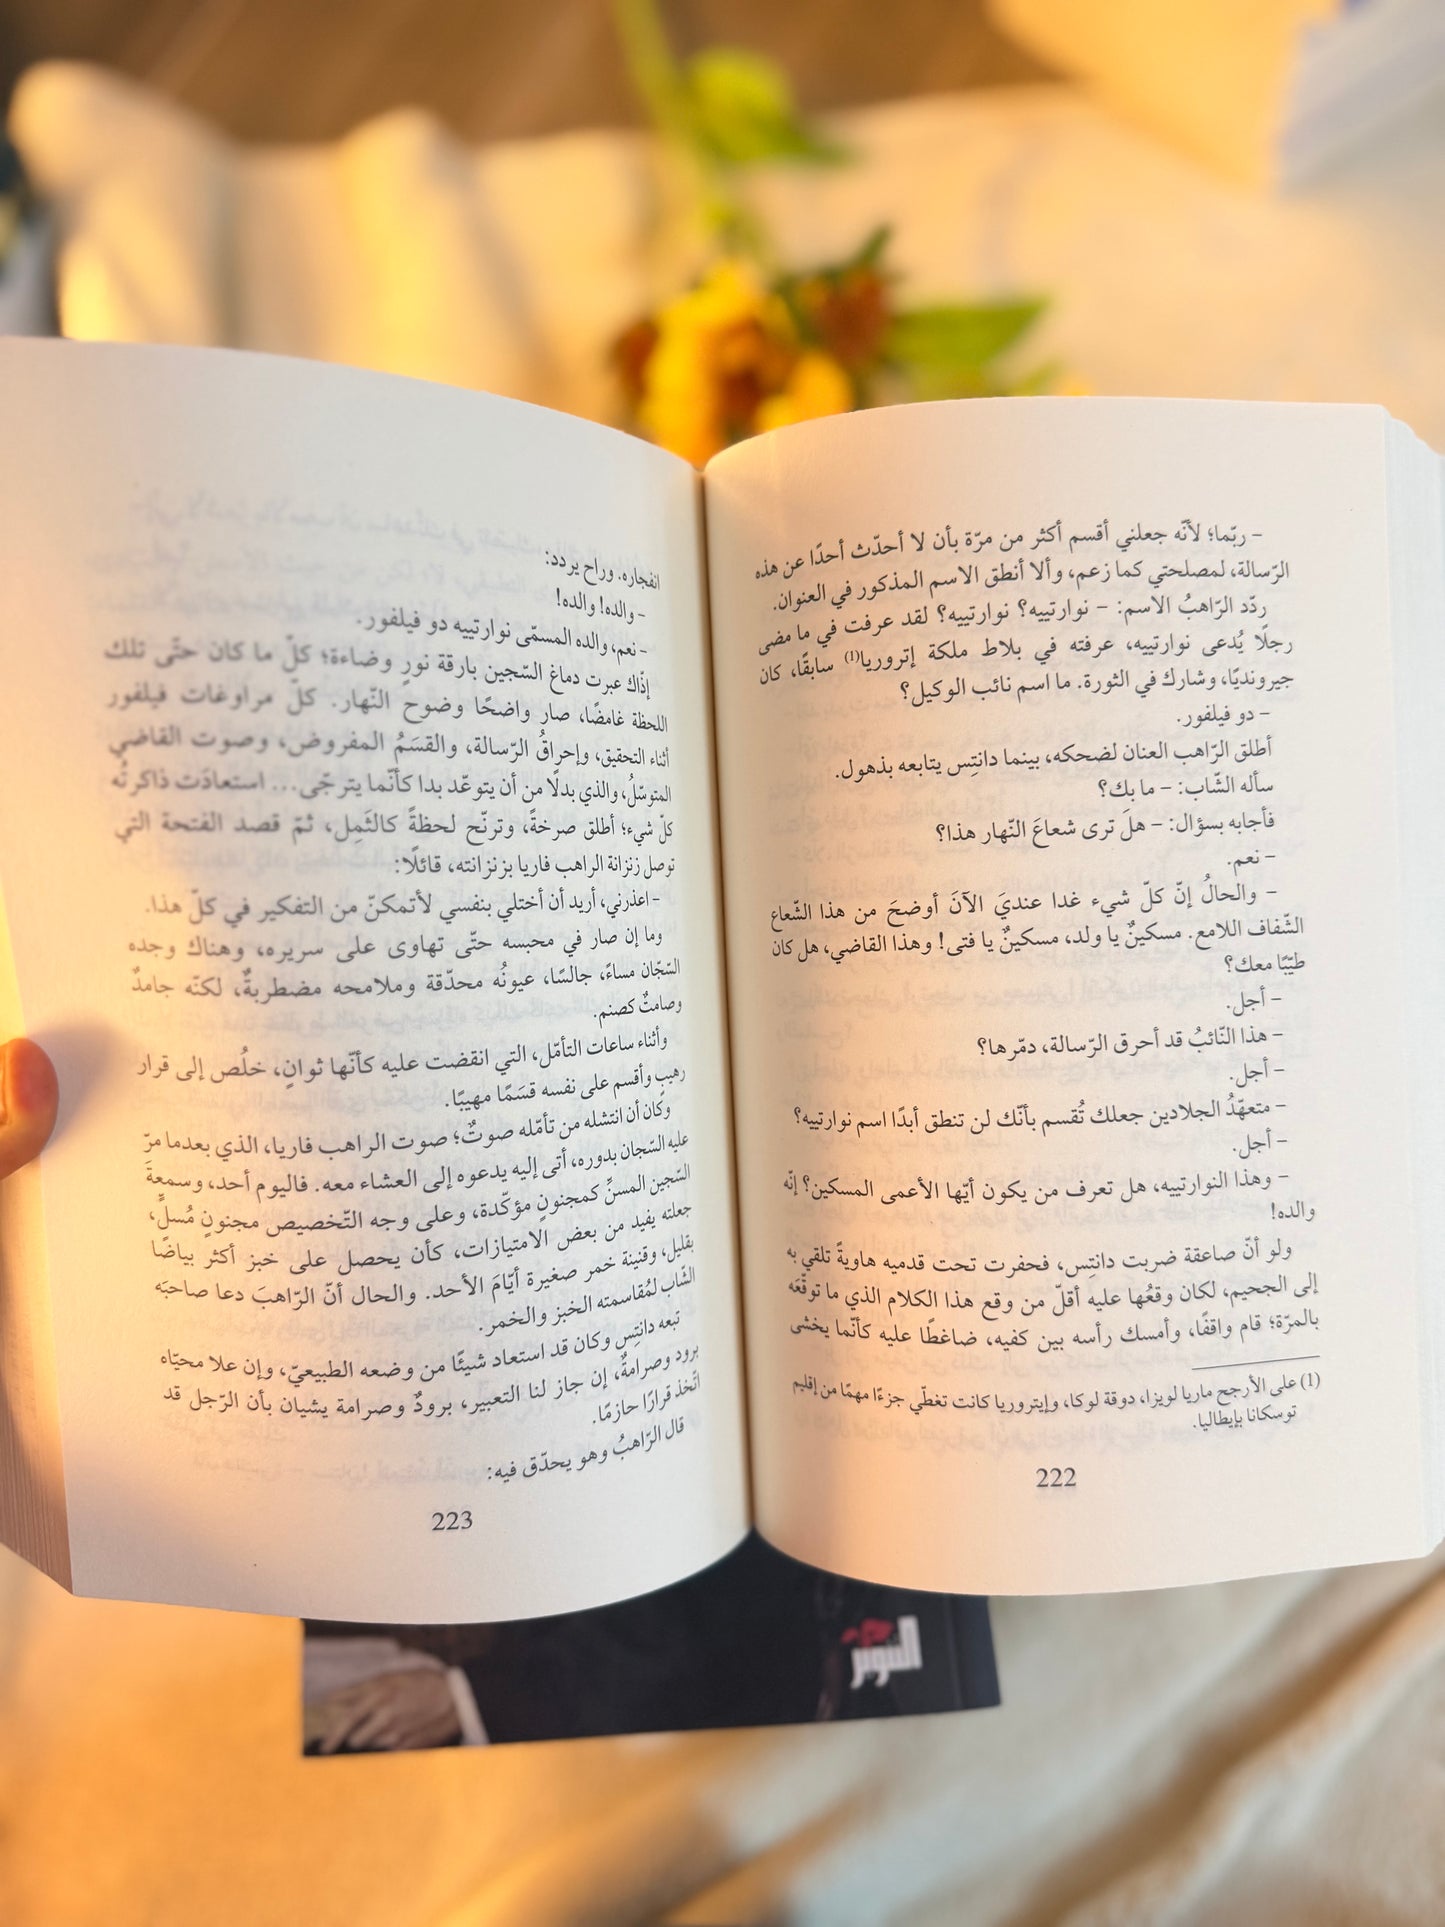 – ربّما؛ لأنّه جعلني أقسم أكثر من مرّة بأن لا أحدّث أحدًا عن هذه
الرّسالة، لمصلحتي كما زعم، وألا أنطق الاسم المذكور في العنوان.
ردّد الرّاهبُ الاسم: – نوارتييه؟ نوارتييه؟ لقد عرفت في ما مضى
رجلًا يُدعى نوارتييه، عرفته في بلاط ملكة إتروريا(1) سابقًا، كان
جيرونديًا، وشارك في الثورة. ما اسم نائب الوكيل؟
– دو فيلفور.
أطلق الرّاهب العنان لضحكه، بينما دانتِس يتابعه بذهول.
سأله الشّاب: – ما بك؟
فأجابه بسؤال: – هلَ ترى شعاعَ النّهار هذا؟
– نعم.
– والحالُ إنّ كلّ شيء غدا عنديَ الآنَ أوضحَ من هذا الشّعاع
الشّفاف اللامع. مسكينٌ يا ولد، مسكينٌ يا فتى! وهذا القاضي، هل كان
طيّبًا معك؟
– أجل.
– هذا النّائبُ قد أحرق الرّسالة، دمّرها؟
– أجل.
– متعهّدُ الجلادين جعلك تُقسم بأنّك لن تنطق أبدًا اسم نوارتييه؟
– أجل.
– وهذا النوارتييه، هل تعرف من يكون أيّها الأعمى المسكين؟ إنّه
والده!
ولو أنّ صاعقة ضربت دانتِس، فحفرت تحت قدميه هاويةً تلقي به
إلى الجحيم، لكان وقعُها عليه أقلّ من وقع هذا الكلام الذي ما توقّعَه
بالمرّة؛ قام واقفًا، وأمسك رأسه بين كفيه، ضاغطًا عليه كأنّما يخشى
(1) على الأرجح ماريا لويزا، دوقة لوكا، وإيتروريا كانت تغطّي جزءًا مهمًا من إقليم
توسكانا بإيطاليا.
222
انفجاره. وراح يردد:
– والده! والده!
– نعم، والده المسمّى نوارتييه دو فيلفور.
إذّاك عبرت دماغ السّجين بارقة نورٍ وضاءة؛ كلّ ما كان حتّى تلك
اللحظة غامضًا، صار واضحًا وضوح النّهار. كلّ مراوغات فيلفور
أثناء التحقيق، وإحراقُ الرّسالة، والقسَمُ المفروض، وصوت القاضي
المتوسّلُ، والذي بدلًا من أن يتوعّد بدا كأنّما يترجّى... استعادَت ذاكرتُه
كلّ شيء؛ أطلق صرخةً، وترنّح لحظةً كالثَمِل، ثمّ قصد الفتحة التي
توصل زنزانة الراهب فاريا بزنزانته، قائلًا:
– اعذرني، أريد أن أختلي بنفسي لأتمكنّ من التفكير في كلّ هذا.
وما إن صار في محبسه حتّى تهاوى على سريره، وهناك وجده
السّجّان مساءً، جالسًا، عيونُه محدّقة وملامحه مضطربةٌ، لكنّه جامدٌ
وصامتٌ كصنم.
وأثناء ساعات التأمّل، التي انقضت عليه كأنّها ثوانٍ، خلُص إلى قرار
رهيبٍ وأقسم على نفسه قسَمًا مهيبًا.
وكان أن انتشله من تأمّله صوتٌ؛ صوت الراهب فاريا، الذي بعدما مرّ
عليه السّجان بدوره، أتى إليه يدعوه إلى العشاء معه. فاليوم أحد، وسمعةَ
السّجين المسنّ كمجنونٍ مؤكّدة، وعلى وجه التّخصيص مجنونٍ مُسلٍّ،
جعلته يفيد من بعض الامتيازات، كأن يحصل على خبز أكثر بياضًا
بقليل، وقنينة خمر صغيرة أيّامَ الأحد. والحال أنّ الرّاهبَ دعا صاحبَه
الشّاب لمُقاسمته الخبز والخمر.
تبعه دانتِس وكان قد استعاد شيئًا من وضعه الطبيعيّ، وإن علا محيّاه
برود وصرامةٌ، إن جاز لنا التعبير، برودٌ وصرامة يشيان بأن الرّجل قد
اتّخذ قرارًا حازمًا.
قال الرّاهبُ وهو يحدّق فيه:
223
التنوير